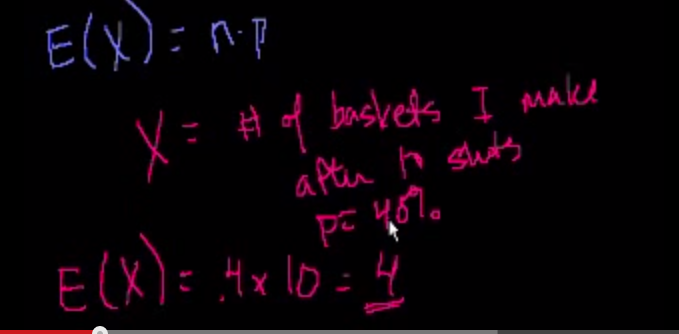 E(X) = n·P
X = # of baskets I make
after n shots
p = 40%.
E(X) = .4 x 10 = 4